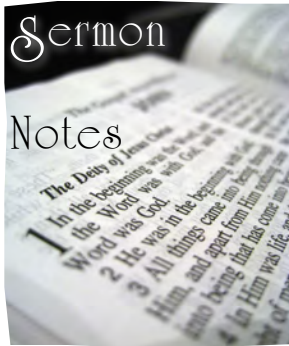 Sermon
Notes
The Deity of Jesus Christ
1 In the beginning was the Word,
the Word was with God, and the
Word was God.
2 He was in the beginning with
3 All things came into being
Him, and apart from Him nothing
into being that has come into
4 In Him was life, and